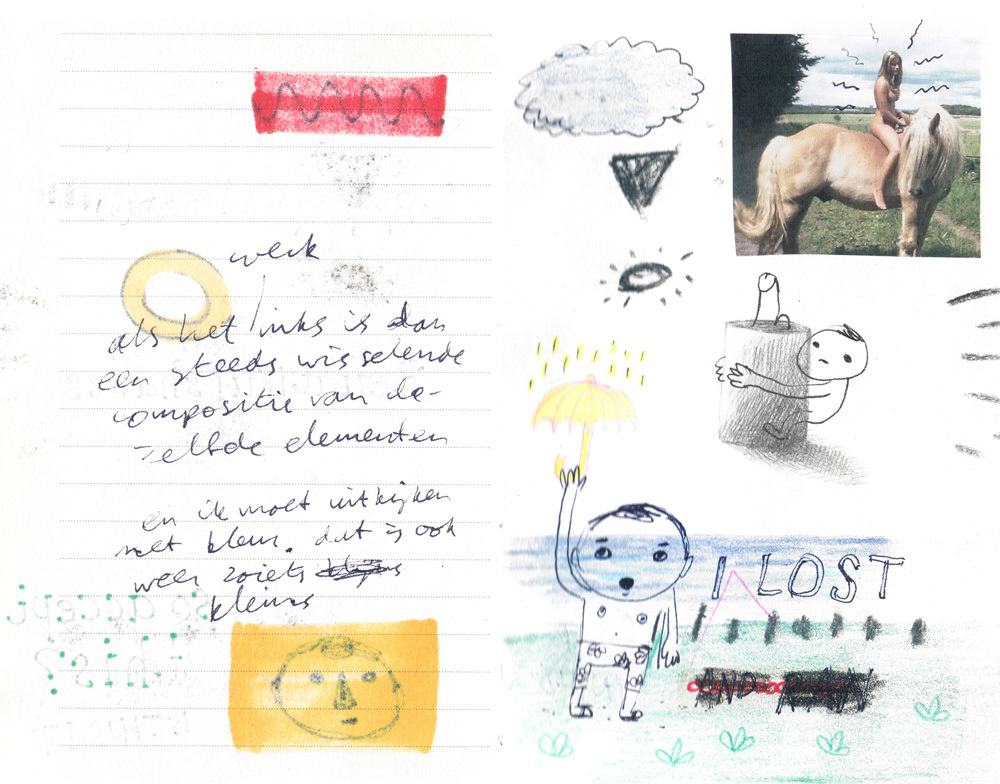 werk
als het links is dan
een steeds wisselende
compositie van de-
zelfde elementen
en ik moet uitkijken
met kleur. dat is ook
weer zoiets
kleins
So accept
this?
I LOST
AND RAN